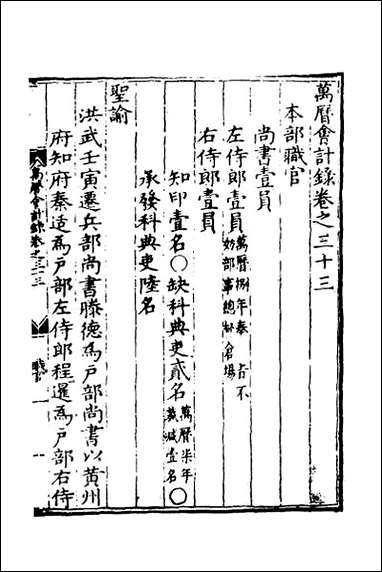 萬曆會計錄卷之三十三
本部職官
尚書壹員
左侍郎壹員萬曆捌年奏 旨不妨部事總制倉場
右侍郎壹員
知印壹名○缺科典吏貳名萬曆柒年裁減壹名○
承發科典吏陸名
聖諭
洪武壬寅遷兵部尚書滕德為戶部尚書以黄州
府知府秦适為戶部左侍郎程暹為戶部右侍
萬曆會計錄卷之三十三
職官
一